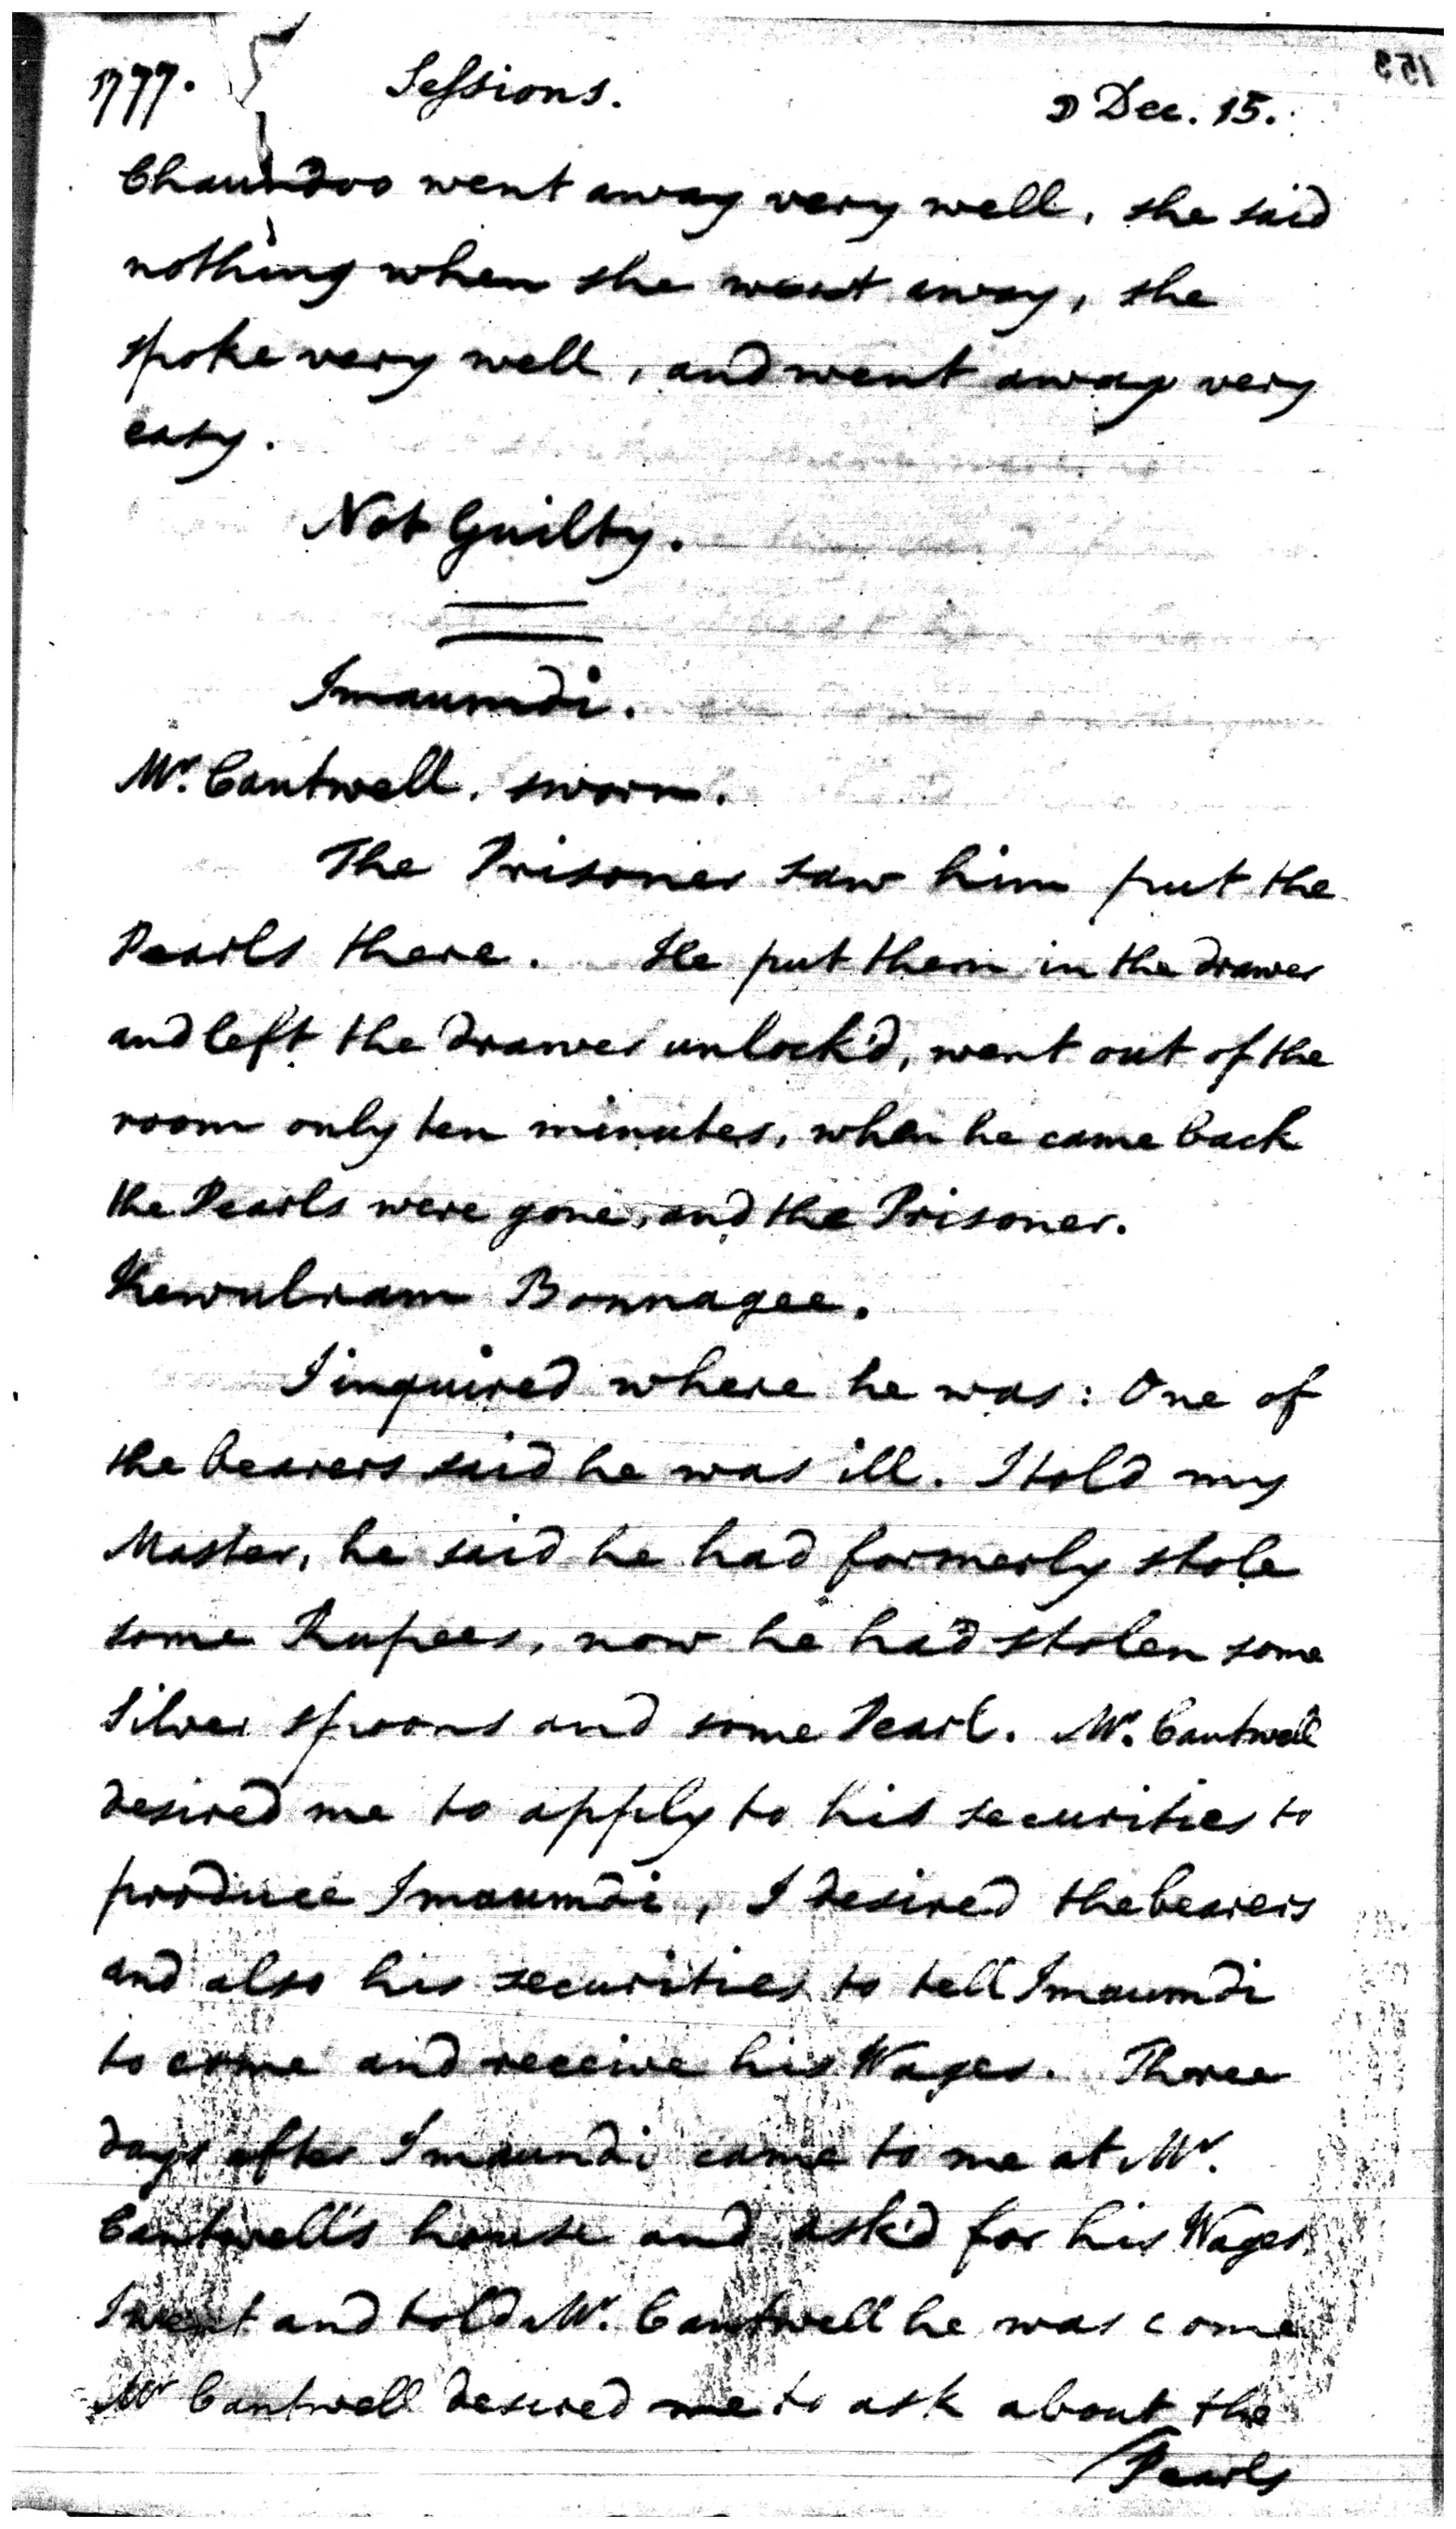 1777. Sessions. ☽ Dec. 15.
Chaundoo went away very well, she said
nothing when she went away, she
spoke very well, and went away very
easy.
Not Guilty.
Imaumdi.
Mr. Cantwell, sworn.
The Prisoner saw him put the
Pearls there. He put them in the drawer
and left the drawer unlock'd, went out of the
room only ten minutes, when he came back
the Pearls were gone, and the Prisoner.
Kewulram Bonnagee.
I inquired where he was: One of
the bearers said he was ill. I told my
Master, he said he had formerly stole
some Rupees, now he had stolen some
Silver spoons and some Pearl. Mr. Cantwell
desired me to apply to his securities to
produce Imaumdi, I desired the bearers
and also his securities to tell Imaumdi
to come and receive his Wages. Three
days after Imaumdi came to me at Mr.
Cantwell's house and ask'd for his Wages.
I went and told Mr. Cantwell he was come.
Mr Cantwell desired me to ask about the
Pearls